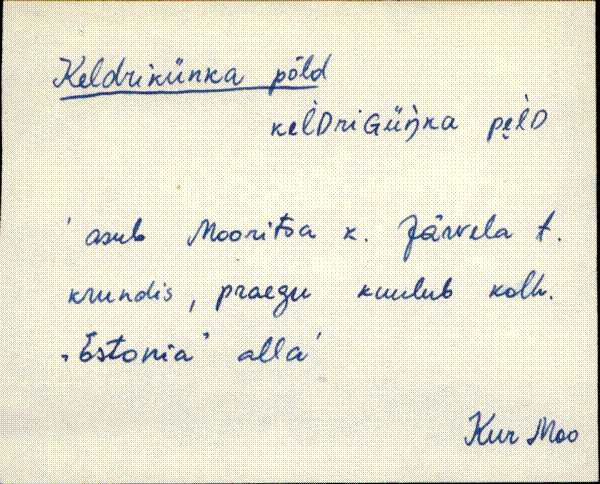 Keldrikünka põld
kèl̀DriGüŋ̀ka pe̮l̀D
' asub Mooritsa k. Järvela t.
krundis, praegu kuulub kolh.
„Estonia" alla'
Kur Moo